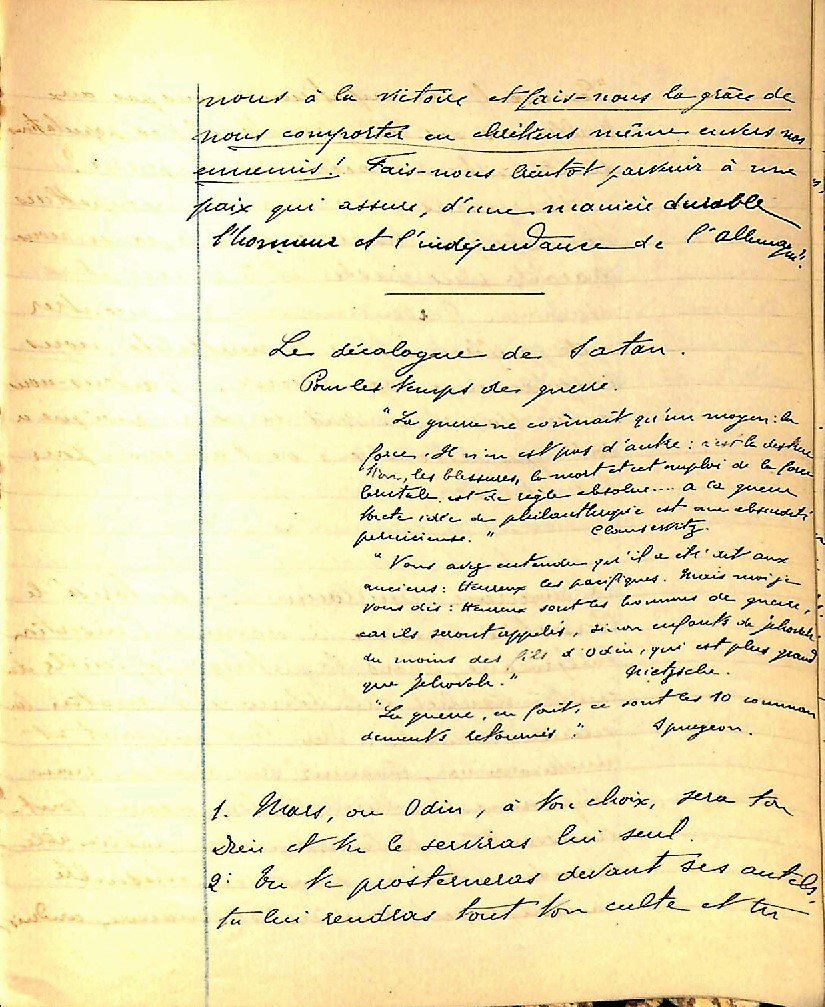 nous à la victoire et fais-nous la grâce de
nous comporter en chrétiens même envers nos
ennemis! Fais-nous bientôt parvenir à une
paix qui assure, d'une manière durable
l'honneur et l'indépendance de l'Allemagne".
Le décalogue de Satan.
Pour les temps de guerre.
"La guerre ne connaît qu'un moyen: la
force. Il n'en est pas d'autre: c'est la destruc
tion, les blessures, la mort et cet emploi de la force
brutale est de règle absolue.... A la guerre
toute idée de philanthropie est une absurdité
pernicieuse." Clausewitz.
"Vous avez entendu qu'il a été dit aux
anciens: Heureux les pacifiques. Mais moi je
vous dis: Heureux sont les hommes de guerre,
car ils seront appelés, sinon enfants de Jéhovah
du moins des fils d'Odin, qui est plus grand
que Jéhovah." Nietzsche.
"La guerre, en fait, ce sont les 10 comman
dements retournés". Spurgeon.
1. Mars, ou Odin, à ton choix, sera ton
Dieu et tu le serviras lui seul.
2: Tu te prosterneras devant ses autels,
tu lui rendras tout ton culte et tu